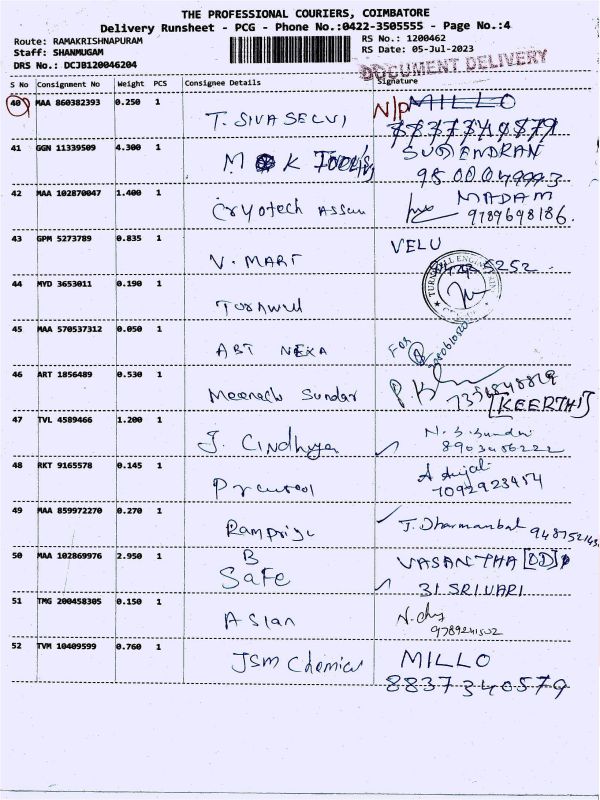 THE PROFESSIONAL COURIERS, COIMBATORE
Delivery Runsheet - PCG - Phone No.:0422-3505555 - Page No.:4
Route: RAMAKRISHNAPURAM RS No.: 1200462
Staff: SHANMUGAM RS Date: 05-Jul-2023
DRS No.: DCJB120046204
DOCUMENT DELIVERY
S No Consignment No Weight PCS Consignee Details Signature
40 MAA 860382393 0.250 1 T. SIVA SELVI N/P MILLO
8837340579
41 GGN 11339509 4.300 1 M K TOOLS SUGENDRAN
42 MAA 102870047 1.400 1 Cryotech MADAM
9789698186.
43 GPM 5273789 0.835 1 V. MART VELU
5252
44 MYD 3653011 0.190 1 Turnwell
45 MAA 570537312 0.050 1 ABT NEXA For
46 ART 1856489 0.530 1 Meenach Sundar
[KEERTHI]
47 TVL 4589466 1.200 1 J.
8903456222
48 RKT 9165578 0.145 1 A Anjali
7092923454
49 MAA 859972270 0.270 1 Rampriya J. Dharmanbal
50 MAA 102869976 2.950 1 B Safe VASANTHA [OD]
31 SRIVARI
51 TMG 200458305 0.150 1 Asian
52 TVM 10409599 0.760 1 JSM Chemical MILLO
8837340579